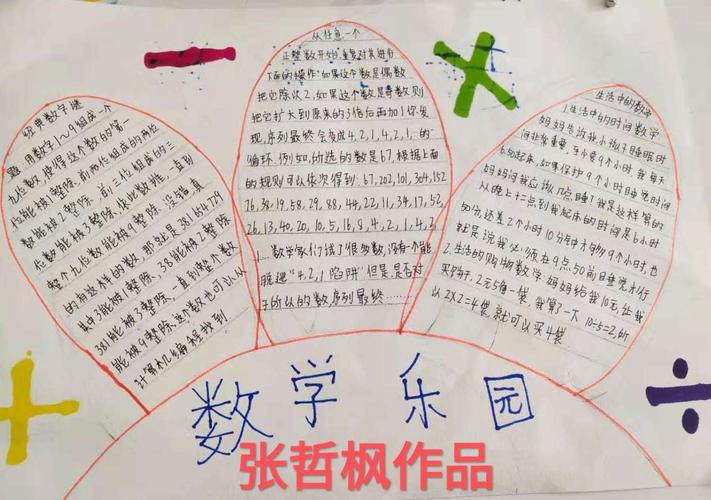 经典数字谜
题:用数字1~9组成一个
九位数,使得这个数的第一
位能被1整除,前两位组成的两位
数能被2整除,前三位组成的三
位数能被3整除,依此类推,一直到
整个九位数能被9整除,没错真
的有这样的数,那就是381654729
其中3能被1整除,38能被2整除
381能被3整除,一直到整个数
能被9整除,这个数也可以从
计算机编程找到.
从任意一个
正整数开始,重复对其进行
下面的操作:如果这个数是偶数
把它除以2,如果这个数是奇数则
把它扩大到原来的3倍后再加1你发
现,序列最终会变成4,2,1,4,2,1,的
循环,例如,所选的数是67,根据上面
的规则可以依次得到:67,202,101,304,152
76,38,19,58,29,88,44,22,11,34,17,52,
26,13,40,20,10,5,16,8,4,2,1,4,2
1....数学家们试了很多数,没有一个能
脱逃"4,2,1陷阱"但是,是否对
于所以的数,序列最终……
生活中的数学
1.生活中的时间数学
妈妈告诉我,小孩子睡眠时
间非常重要,至少要9个小时,我每天
6:50起床,如果保护9个小时睡觉时间
妈妈问我应该几点睡?我是这样算的
从晚上十二点到我起床的时间是6小时
50分,还差2个小时10分钟才够9个小时,也
就是说我必须在9点50前睡觉才行
2.生活的购物数学,妈妈给我10元,让我
买钩子,2元5角一袋,我算了一下10÷5=2,所
以2×2=4袋,就可以买4袋
数学乐园
张哲枫作品